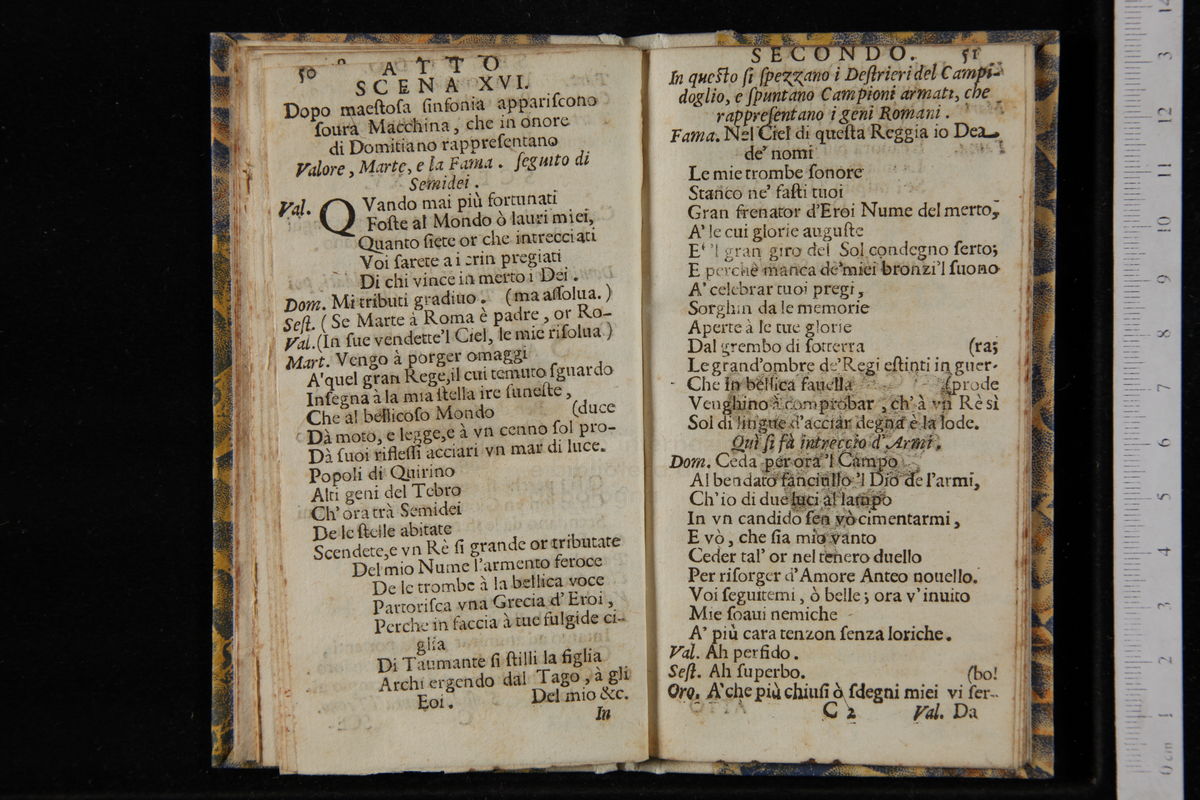 50 ATTO
SCENA XVI.
Dopo maestosa sinfonia appariscono
soura Macchina, che in onore
di Domitiano rappresentano
Valore, Marte, e la Fama. seguito di
Semidei.
Val. QVando mai più fortunati
Foste al Mondo ò lauri miei,
Quanto siete or che intrecciati
Voi sarete a i crin pregiati
Di chi vince in merto i Dei.
Dom. Mi tributi gradiuo. (ma assolua.)
Sest. (Se Marte à Roma è padre, or Ro-
Val. (In sue vendette'l Ciel, le mie risolua)
Mart. Vengo à porger omaggi
A'quel gran Rege, il cui temuto sguardo
Insegna à la mia stella ire funeste,
Che al bellicoso Mondo (duce
Dà moto, e legge, e à vn cenno sol pro-
Dà suoi riflessi acciari vn mar di luce.
Popoli di Quirino
Alti geni del Tebro
Ch' ora trà Semidei
De le stelle abitate
Scendete, e vn Rè si grande or tributate
Del mio Nume l'armento feroce
De le trombe à la bellica voce
Partorisca vna Grecia d'Eroi,
Perche in faccia à tue fulgide ci-
glia
Di Taumante si stilli la figlia
Archi ergendo dal Tago, à gli
Eoi. Del mio &c.
In
SECONDO. 51
In questo si spezzano i Destrieri del Campi-
doglio, e spuntano Campioni armati, che
rappresentano i geni Romani.
Fama. Nel Ciel di questa Reggia io Dea
de' nomi
Le mie trombe sonore
Stanco ne' fasti tuoi
Gran frenator d'Eroi Nume del merto,
A' le cui glorie auguste
E' 'l gran giro del Sol condegno serto;
E perche manca de'miei bronzi'l suono
A' celebrar tuoi pregi,
Sorghin da le memorie
Aperte à le tue glorie
Dal grembo di sotterra (ra;
Le grand'ombre de'Regi estinti in guer-
Che in bellica fauella (prode
Venghino à comprobar, ch'à vn Rè sì
Sol di lingue d'acciar degna è la lode.
Quì si fà intreccio d'Armi.
Dom. Ceda per ora 'l Campo
Al bendato fanciullo 'l Dio de l'armi,
Ch'io di due luci al lampo
In vn candido sen vò cimentarmi,
E vò, che sia mio vanto
Ceder tal' or nel tenero duello
Per risorger d'Amore Anteo nouello.
Voi seguitemi, ò belle; ora v'inuito
Mie soaui nemiche
A' più cara tenzon senza loriche.
Val. Ah perfido.
Sest. Ah superbo. (bo!
Oro. A'che più chiusi ò sdegni miei vi ser-
C 2 Val. Da